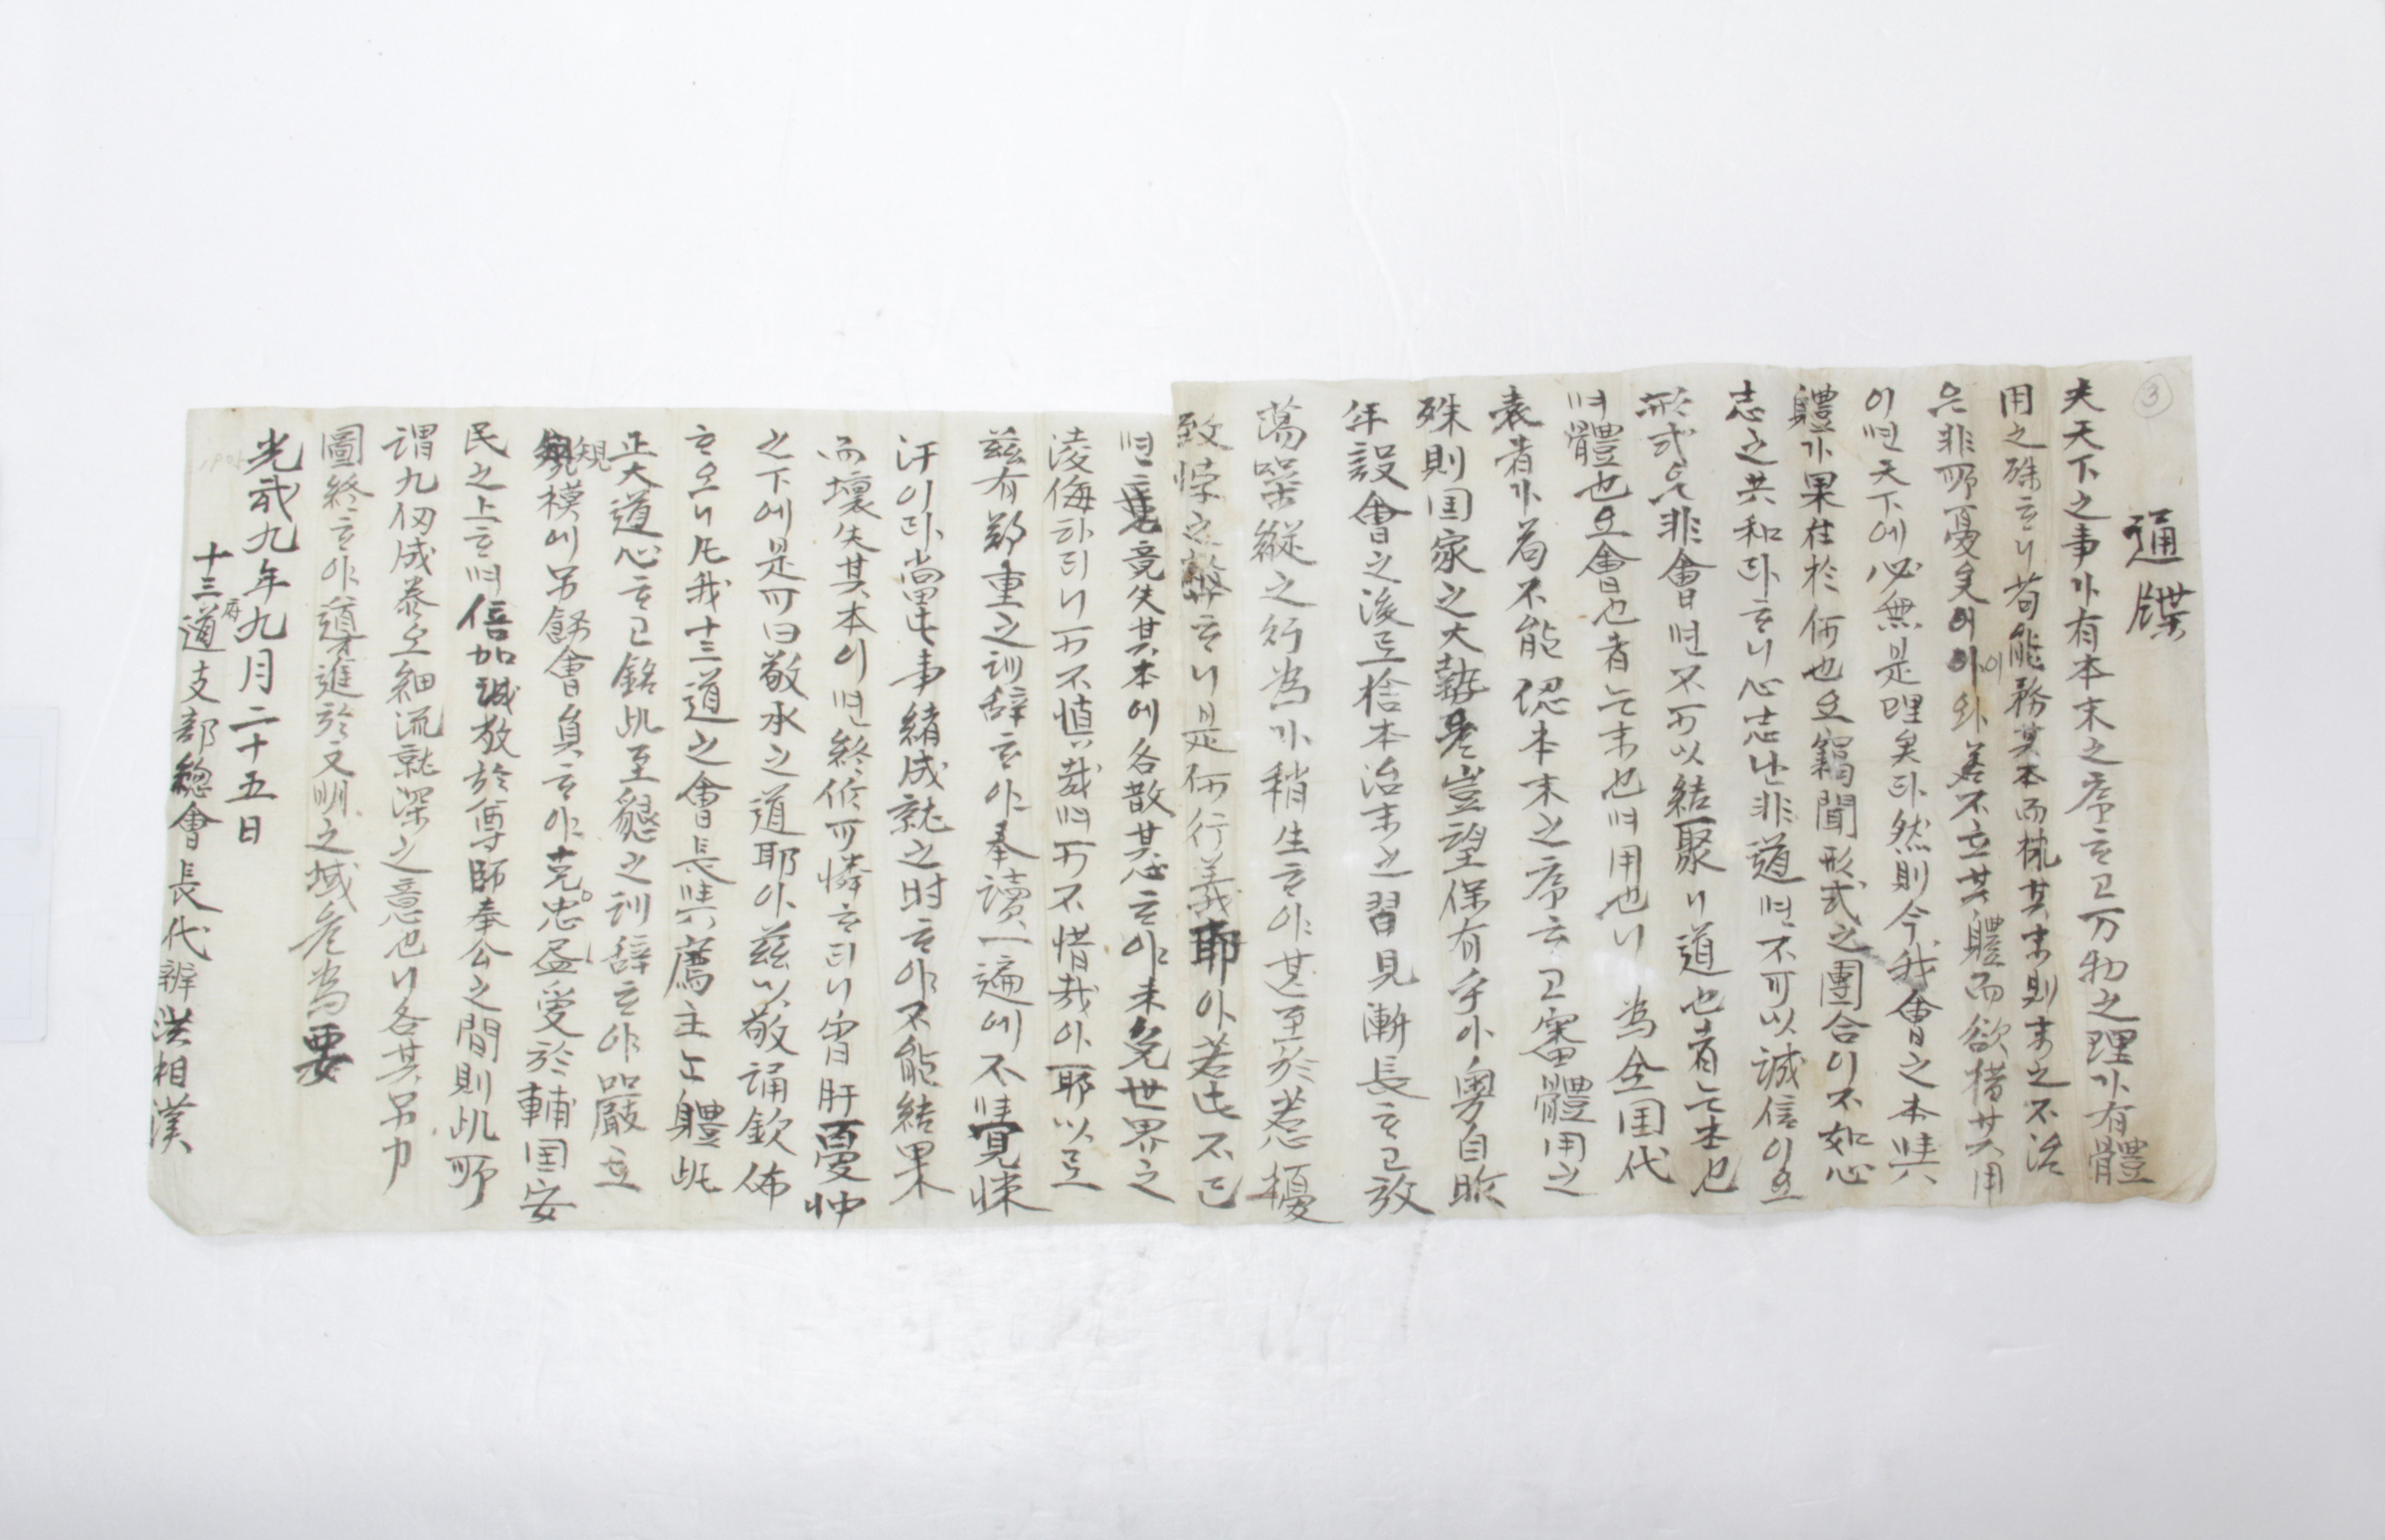 ③
通牒
夫天下之事가有本末之序하고万物之理가有體
用之殊하니苟能務其本而梳其末則末之不治
은非所憂矣어이와若不立其體而欲措其用
이면天下에必無是理矣라然則今我會之本與
體가果在於何也오竊聞形式之團合이不如心
志之共和라하니心志난非道면不可以誠信이오
形式은非會면不可以結聚니道也者는本也
며體也오會也者는末也며用也니 為全国代
表者가苟不能認本末之序하고審體用之
殊則国家之大勢를豈望保有乎아粤自昨
年設會之後로捨本治末之習見漸長하고放
蕩噪縱之行為가稍生하야甚至於惹擾
致悖之弊하니是何行義耶아若此不已
면竟失其本에各散其心하야未免世界之
淩侮하리니可不愼哉며可不惜哉아耶以로
玆有鄭重之訓辭하야奉讀一遍에不覺悚
汗이라當此事緖成就之時하야不能結果
而壞失其本이면終作可憐하리니宵肝憂忡
之下에是可曰敬承之道耶아玆以敬誦欽佈
하오니凡我十三道之會長與薦主と體此
正大道心하고銘此至懇之訓辭하야嚴立
規模에另飭會員하야克忠盡愛於輔国安
民之上하며倍加誠敬於尊師奉公之間則此所
謂九仞成泰오細流就深之意也니各其另力
圖終하야遵進於文明之域爲要
光武九年九月二十五日
十三府道支部總會長代辨洪相漢
1905